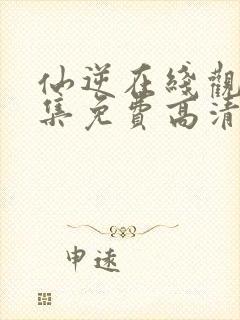 仙逆在綫觀
集免費高清
申遠